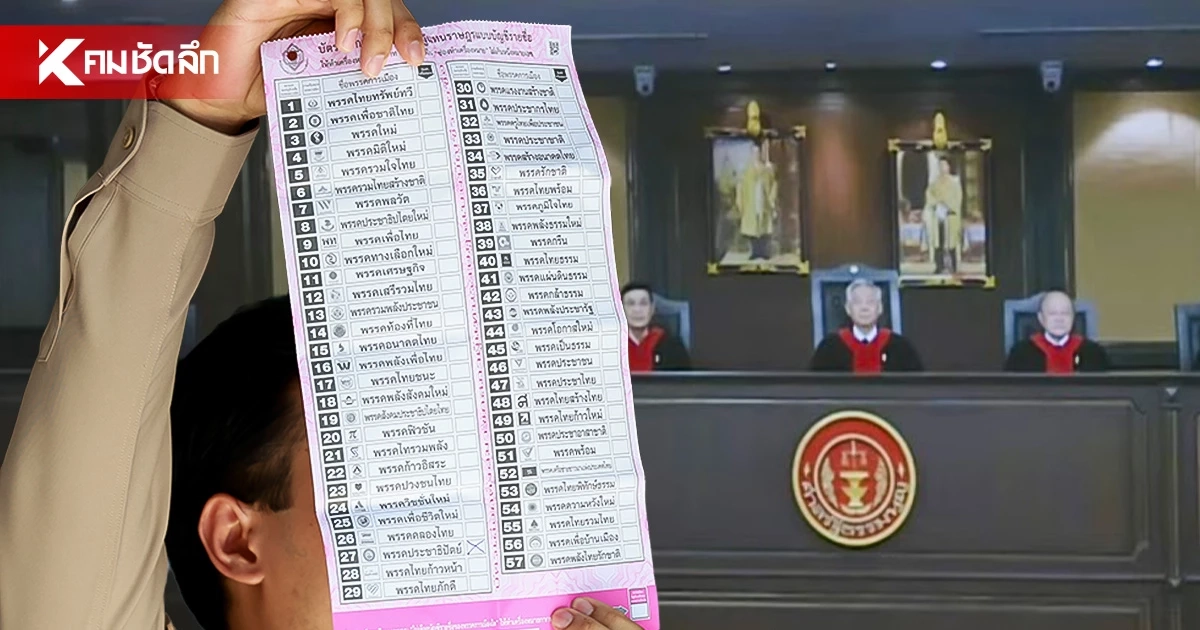 คมชัดลึก
ชื่อพรรคการเมือง
1 พรรคไทยทรัพย์ทวี
2 พรรคเพื่อชาติไทย
3 พรรคใหม่
4 พรรคมิติใหม่
5 พรรครวมใจไทย
6 พรรครวมไทยสร้างชาติ
7 พรรคพลวัต
8 พรรคประชาธิปไตยใหม่
9 พรรคเพื่อไทย
10 พรรคทางเลือกใหม่
11 พรรคเศรษฐกิจ
12 พรรคเสรีรวมไทย
13 พรรครวมพลังประชาชน
14 พรรคท้องที่ไทย
15 พรรคอนาคตไทย
16 พรรคพลังเพื่อไทย
17 พรรคไทยชนะ
18 พรรคพลังสังคมใหม่
19 พรรคสังคมประชาธิปไตยไทย
20 พรรคฟิวชัน
21 พรรคไทรวมพลัง
22 พรรคก้าวอิสระ
23 พรรคปวงชนไทย
24 พรรควิชชั่นใหม่
25 พรรคเพื่อชีวิตใหม่
26 พรรคคลองไทย
27 พรรคประชาธิปัตย์
28 พรรคไทยก้าวหน้า
29 พรรคไทยภักดี
ชื่อพรรคการเมือง
30 พรรคแรงงานสร้างชาติ
31 พรรคประชากรไทย
32 พรรคครูไทยเพื่อประชาชน
33 พรรคประชาชาติ
34 พรรคสร้างอนาคตไทย
35 พรรครักชาติ
36 พรรคไทยพร้อม
37 พรรคภูมิใจไทย
38 พรรคพลังธรรมใหม่
39 พรรคกรีน
40 พรรคไทยธรรม
41 พรรคแผ่นดินธรรม
42 พรรคกล้าธรรม
43 พรรคพลังประชารัฐ
44 พรรคโอกาสใหม่
45 พรรคเป็นธรรม
46 พรรคประชาชน
47 พรรคประชาไทย
48 พรรคไทยสร้างไทย
49 พรรคไทยก้าวใหม่
50 พรรคประชาอาสาชาติ
51 พรรคพร้อม
52
53 พรรคไทยพิทักษ์ธรรม
54 พรรคความหวังใหม่
55 พรรคไทยรวมไทย
56 พรรคเพื่อบ้านเมือง
57 พรรคพลังไทยรักชาติ
ศาลรัฐธรรมนูญ